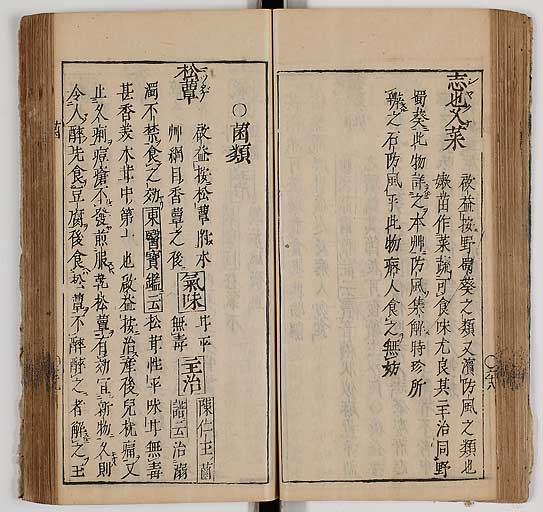 志也久菜
啟益按野蜀葵之類又濱防風之類也
嫩苗作菜蔬可食味尤良其主治同野
蜀葵此物詳之本艸防風集解時珍所
謂之石防風乎此物病人食之無妨
○菌類
松蕈
啟益按松蕈附本 氣味 甘平 主治 陳仁玉菌
艸綱目香蕈之後 無毒 譜云治溺
濁不禁食之効東醫寶鑑云松茸性平味甘無毒
甚香美木茸中第一也啟益按治產後兒枕痛又
止久痢痘瘡不發煎服乾松蕈有効宜新物久則
令人醉先食豆腐後食松蕈不醉醉之者解之主